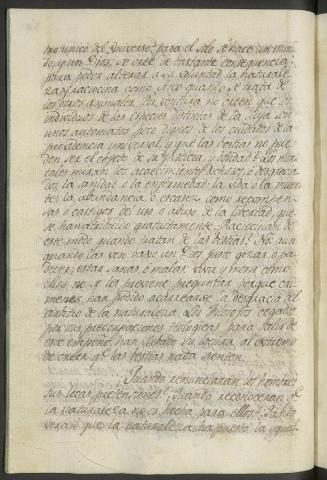 tro unico del Universo? para el solo se hace un mun
do, y un Dios, se cree de bastante consequencia
para poder alterar a su voluntad la naturale
za, y raciocina como Ateo quando se trata de
los otros animales. Por ventura no creen que los
individuos de las especies distintas de la suya son
unos automatas poco dignos de los cuidados de la
providencia universal, y que las bestias no pue
den ser el objeto de su justicia, y bondad? Los mor
tales miran los acaecimientos dichosos, ò desgracia
dos, la sanidad ò la enfermedad, la vida ò la muer
te, la abundancia ò escasez como recompen
sas o castigos del uso o abuso de la libertad, que
se han atribuido gratuitamente. Raciocinan de
este modo quando tratan de las bestias? No: aun
quando las ven baxo un Dios justo gozar, ò pa
decer, estar sanas, ò malas, vivir y morir como
ellos no se les previene preguntar porque cri
menes han podido acarrearse la desgracia del
arbitro de la naturaleza. Los Filosofos cegados
por sus preocupaciones religiosas para salir de
este empeño, han llebado su locura al extremo
de creer qe. las bestias nada sienten.
¿Quando renunciaran los hombres
sus locas pretensiones? ¿Quando reconoceran qe.
la naturaleza no es hecha para ellos? ¿Quando
veran que la naturaleza ha puesto la igual-